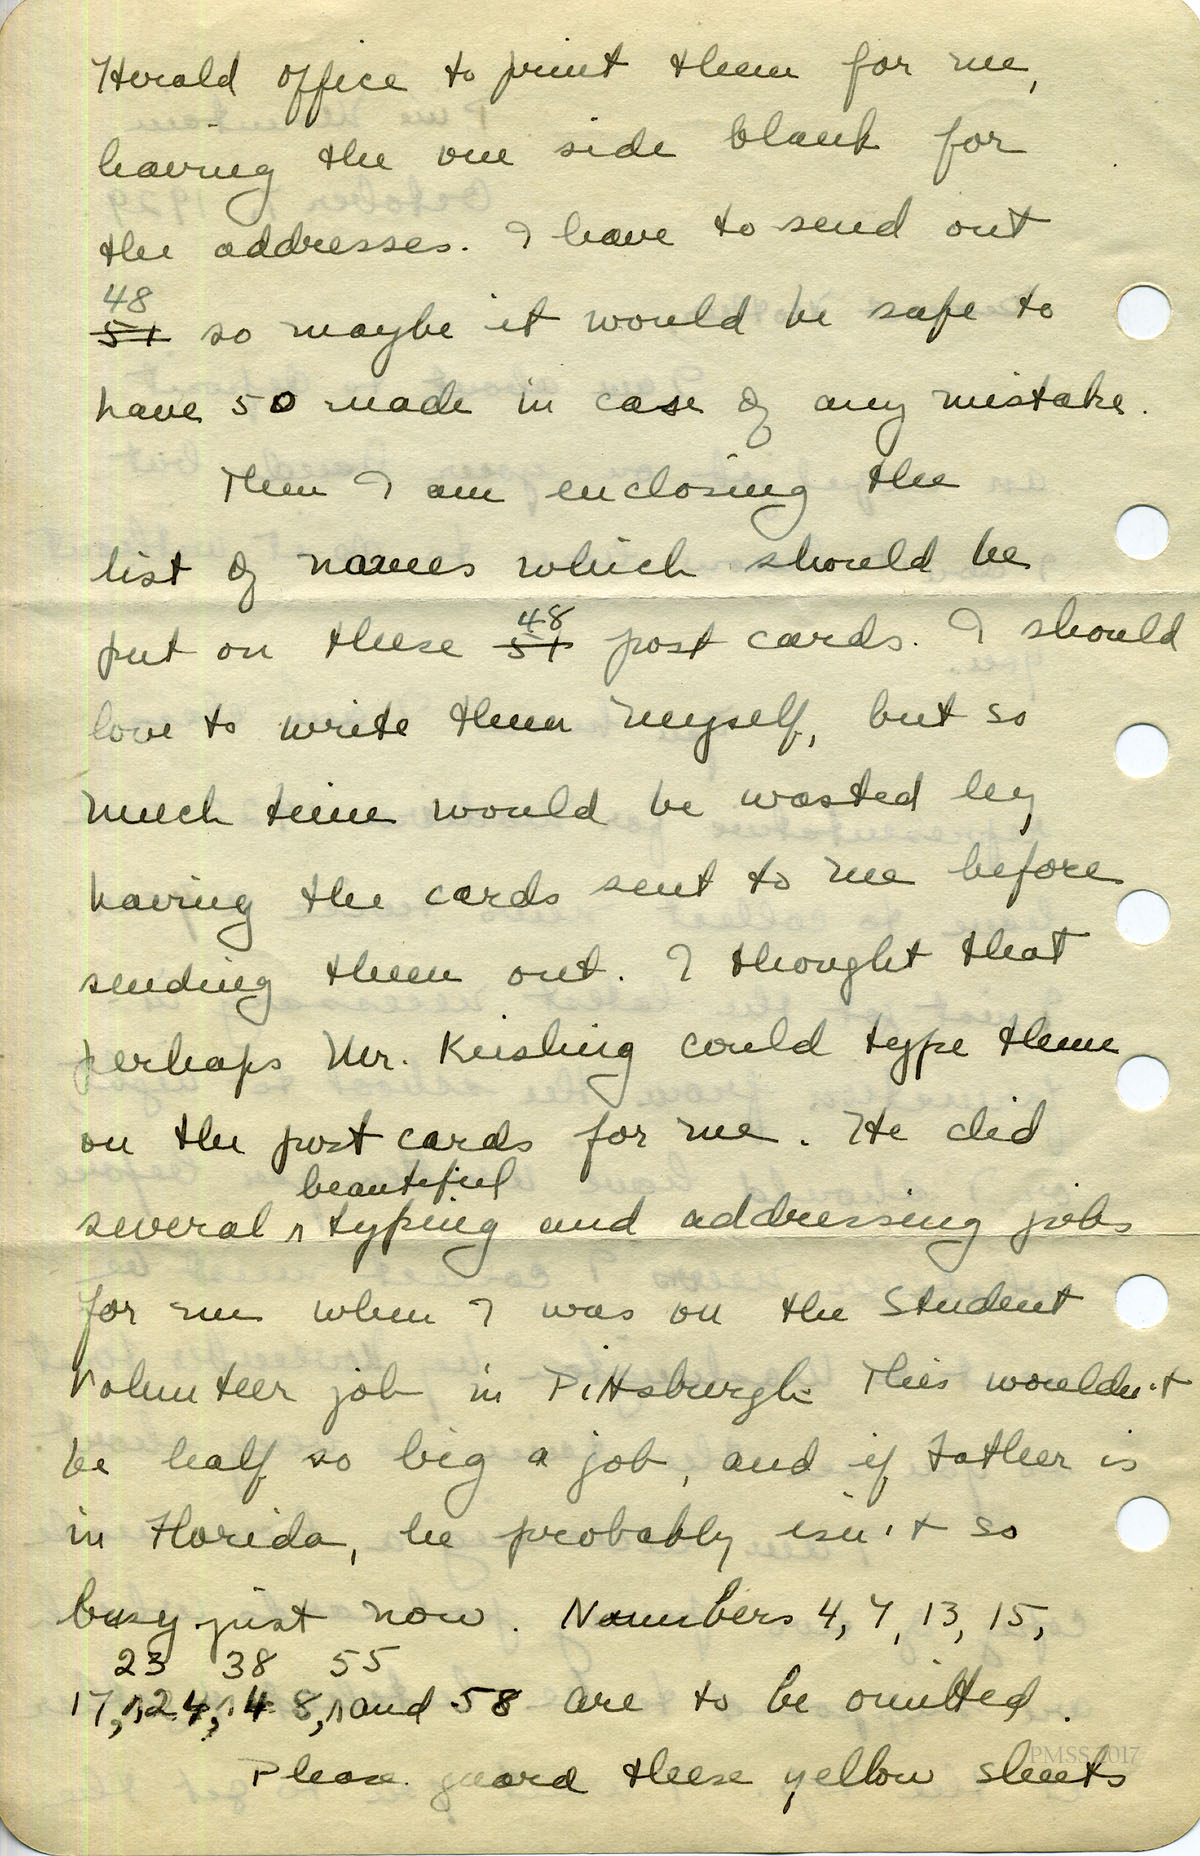 Herald office to print them for me,
having the one side blank for
the addresses. I have to send out
48
51 so maybe it would be safe to
have 50 made in case of any mistake.
Then I am enclosing the
list of names which should be
48
put on these 51 post cards. I should
love to write them myself, but so
much time would be wasted by
having the cards sent to me before
sending them out. I thought that
perhaps Mr. could type them
on the post cards for me. He did
beautiful
several ^ typing and addressing jobs
for me when I was on the Student
Volunteer job in Pittsburgh. This wouldn't
be half so big a job, and if Father is
in Florida, he probably isn't so
busy just now. Numbers 4, 7, 13, 15,
23 38 55
17, ^ 24, ^ 48, ^ and 58 are to be omitted.
Please guard these yellow sheets
PMSS 2017